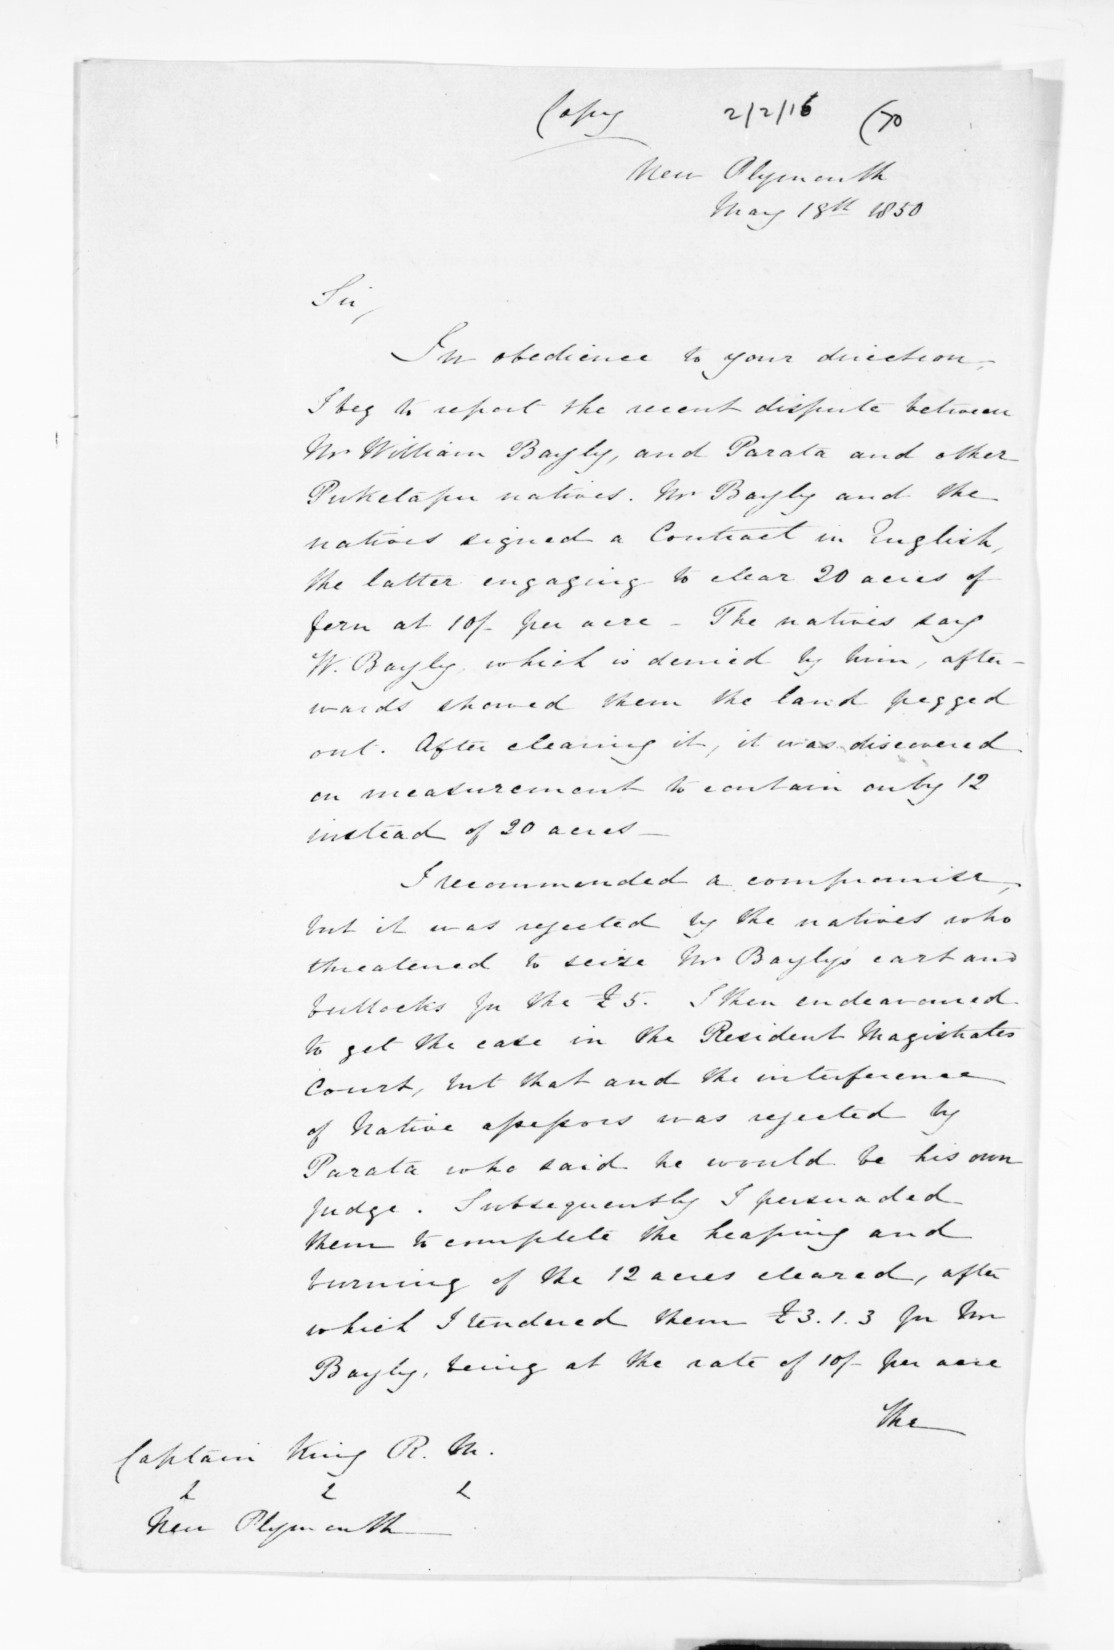 Copy 2/2/16 (70
New Plymouth
May 18th 1850
Sir,
In obedience to your direction,
I beg to report the recent dispute between
Mr William Bayly, and Parata and other
Puketapu natives. Mr Bayly and the
natives signed a Contract in English,
the latter engaging to clear 20 acres of
fern at 10/- per acre - The natives say
W. Bayly, which is denied by him, after-
wards showed them the land pegged
out. After clearing it, it was discovered
on measurement to contain only 12
instead of 20 acres -
I recommended a compromise,
but it was rejected by the natives who
threatened to seize Mr Bayly's cart and
bullocks for the £5. I then endeavoured
to get the case in the Resident Magistrates
Court, but that and the interference
of Native assessors was rejected by
Parata who said he would be his own
judge. Subsequently I persuaded
them to complete the heaping and
burning of the 12 acres cleared, after
which I tendered them £3.1.3 for Mr
Bayly, being at the rate of 10/- per acre
the
Captain King R. M.
New Plymouth